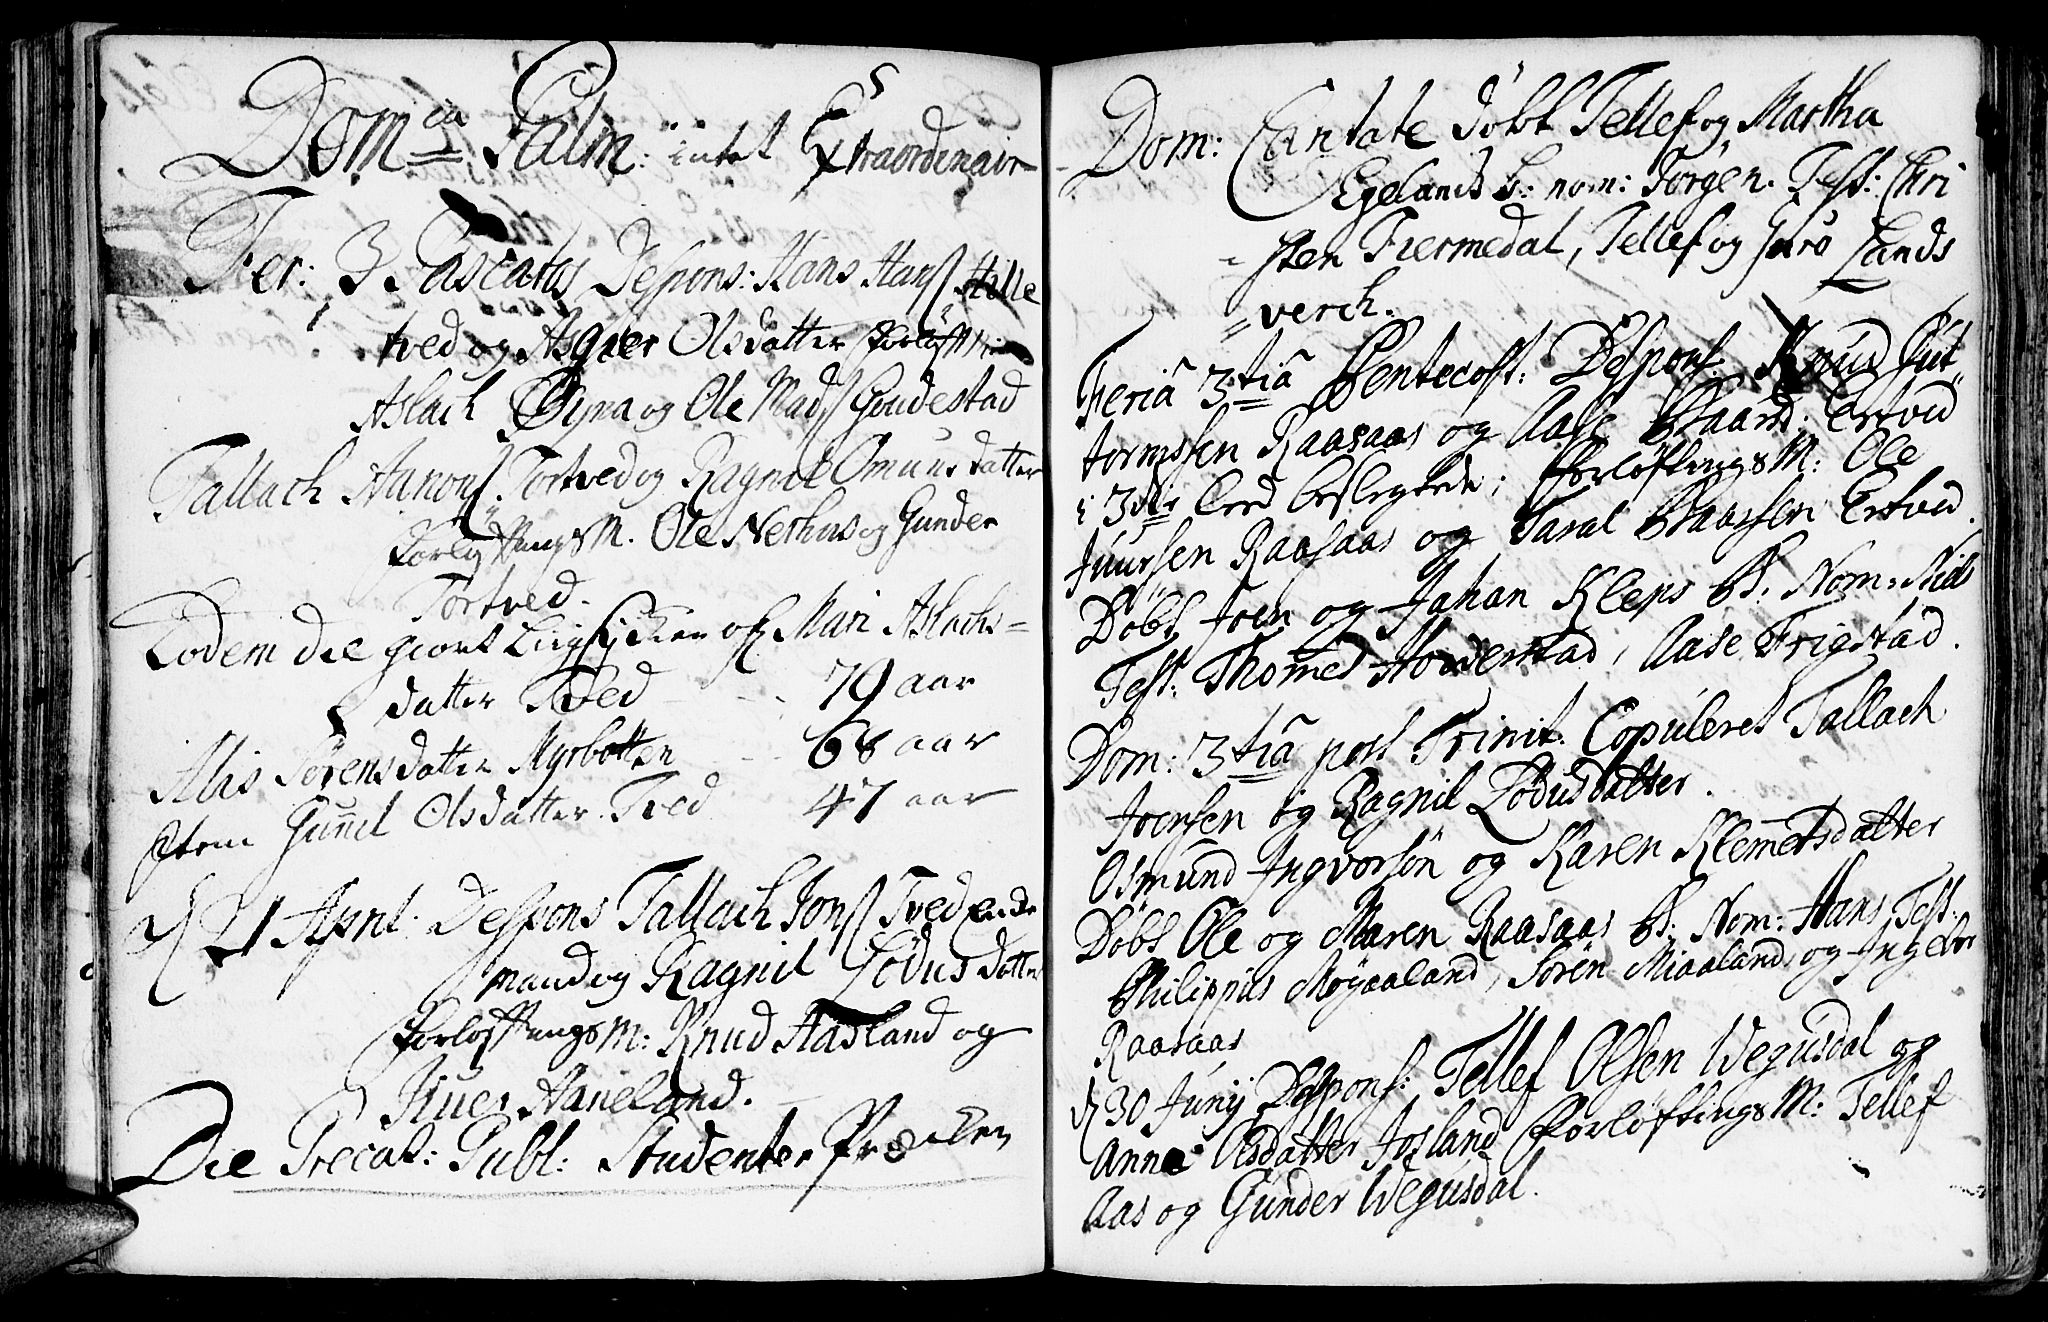 Dom<sup>ca</sup> Palm: intet Extraordenair
Fer: 3 Pascatos Despons: Hans Hanss Hille
tved og Asgier Olsdatter
Aslach Øyna og Ole Madss Goudestad
Tallach Aanons. Tortved og Ragnil Omunsdatter
Forløftnings M. Ole Nethus og Gunder
Tortved.
Eodem die giort Liig af Mari Aslachs=
datter Tved - - 79 aar
Alis Sørensdatter Myrbotten - - 68 aar
Item Gunnil Olsdatter Tved 47 aar
d 21 April: Despons Tallach Jonss Tved Enche
mand og Ragnil Lodusdatter
Forløftnings M: Knud Aasland og
Haneland.
Die Precat: Publ: Studenter Prædiken
Dom: Cantate døbt Tellef og Martha
Egelands B: nom: Jørgen. Test: Chri
-sten Fiermedal, Tellef og Lands
=verch.
Feria 3tia Pentecost: Despons. Knud Gut
tormssen Raasaas og Aase Baard: Ertvid
i 3die Leed beslegtede; Forløftnings M: Ole
Juursen Raasaas og Taral Baarsen Ertved.
Døbt Joen og Johan Kleps B. Nom: Niels
Test: Thomes Howerstad, Aase Frigstad.
Dom: 3tia post Trinit: Copuleret Tallach
Joensen og Ragnil Lodusdatter.
Osmund Ingvorsøn og Karen Klemetsdatter
Døbt Ole og Maren Raasaas B. Nom: Hans, Test.
Philippus Møyaaland, Søren Miaaland, og Ingebor
Raasaas
d 30 Junij Despons: Tellef Olsen Wegusdal og
Anne Olsdatter Josland Forløftnings M: Tellef
Aas og Gunder Wegusdal.